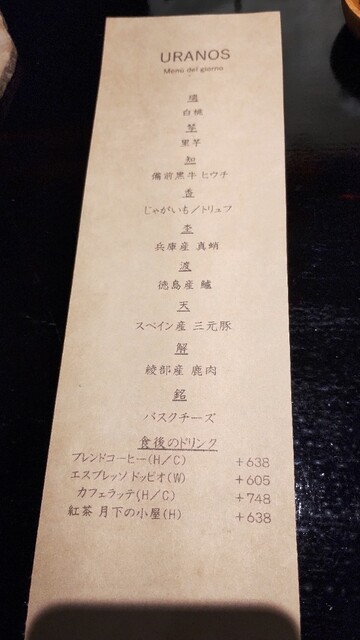 URANOS
Menu del giorno
瑶
白桃
琴
里芋
知
備前黒牛 ヒウチ
香
じゃがいも／トリュフ
杢
兵庫産 真蛸
渡
徳島産 鱸
天
スペイン産 三元豚
解
綾部産 鹿肉
銘
バスクチーズ
食後のドリンク
ブレンドコーヒー(H／C) +638
エスプレッソ ドッピオ(W) +605
カフェラッテ(H／C) +748
紅茶 月下の小屋(H) +638